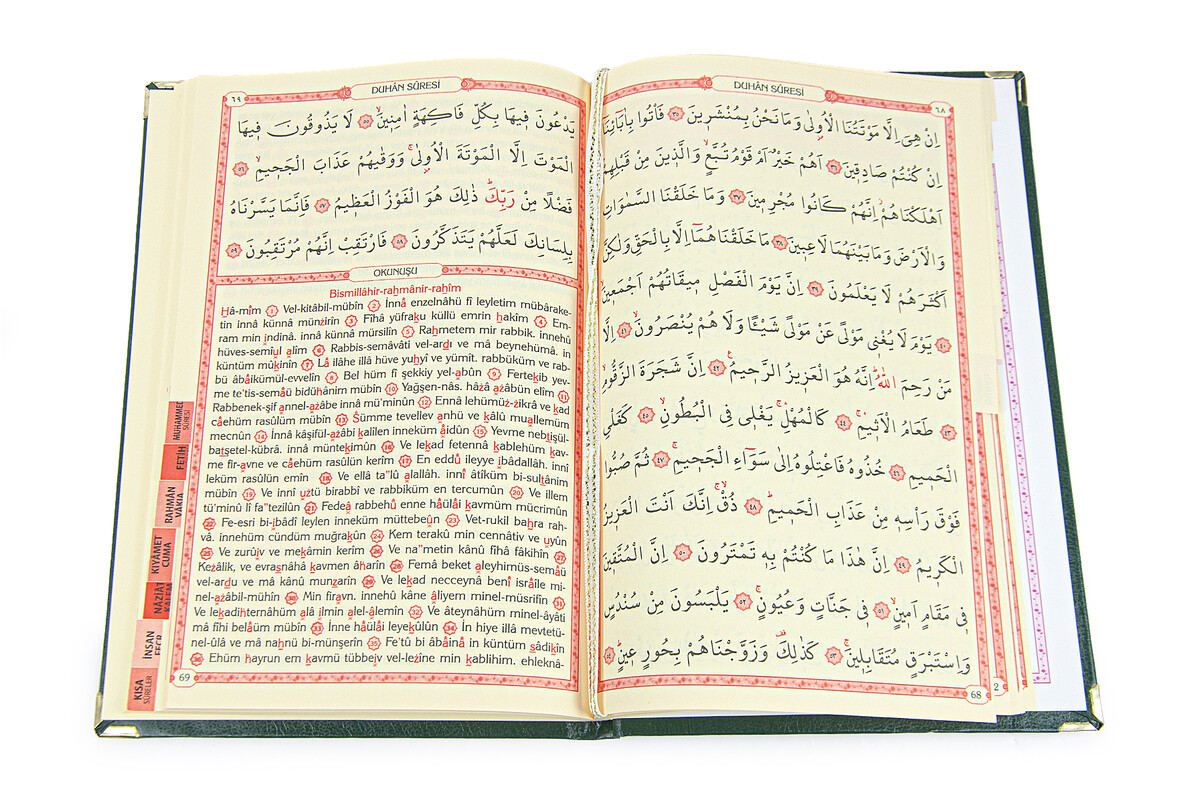 DUHÂN SÛRESİ
٦٨
اِنْ هِىَ اِلَّا مَوْتَتُنَا الْاُولٰى وَمَا نَحْنُ بِمُنْشَرٖينَ ٣٥ فَأْتُوا بِاٰبَائِنَا
اِنْ كُنْتُمْ صَادِقٖينَ ٣٦ اَهُمْ خَيْرٌ اَمْ قَوْمُ تُبَّعٍ وَالَّذٖينَ مِنْ قَبْلِهِمْ
اَهْلَكْنَاهُمْ اِنَّهُمْ كَانُوا مُجْرِمٖينَ ٣٧ وَمَا خَلَقْنَا السَّمٰوَاتِ
وَالْاَرْضَ وَمَا بَيْنَهُمَا لَاعِبٖينَ ٣٨ مَا خَلَقْنَاهُمَا اِلَّا بِالْحَقِّ وَلٰكِنَّ
اَكْثَرَهُمْ لَا يَعْلَمُونَ ٣٩ اِنَّ يَوْمَ الْفَصْلِ مٖيقَاتُهُمْ اَجْمَعٖينَ
٤٠ يَوْمَ لَا يُغْنٖى مَوْلًى عَنْ مَوْلًى شَيْـًٔا وَلَا هُمْ يُنْصَرُونَ ٤١ اِلَّا
مَنْ رَحِمَ اللّٰهُ اِنَّهُ هُوَ الْعَزٖيزُ الرَّحٖيمُ ٤٢ اِنَّ شَجَرَةَ الزَّقُّومِ
٤٣ طَعَامُ الْاَثٖيمِ ٤٤ كَالْمُهْلِ يَغْلٖى فِى الْبُطُونِ ٤٥ كَغَلْىِ
الْحَمٖيمِ ٤٦ خُذُوهُ فَاعْتِلُوهُ اِلٰى سَوَاءِ الْجَحٖيمِ ٤٧ ثُمَّ صُبُّوا
فَوْقَ رَأْسِهٖ مِنْ عَذَابِ الْحَمٖيمِ ٤٨ ذُقْ اِنَّكَ اَنْتَ الْعَزٖيزُ
الْكَرٖيمُ ٤٩ اِنَّ هٰذَا مَا كُنْتُمْ بِهٖ تَمْتَرُونَ ٥٠ اِنَّ الْمُتَّقٖينَ
فٖى مَقَامٍ اَمٖينٍ ٥١ فٖى جَنَّاتٍ وَعُيُونٍ ٥٢ يَلْبَسُونَ مِنْ سُنْدُسٍ
وَاِسْتَبْرَقٍ مُتَقَابِلٖينَ ٥٣ كَذٰلِكَ وَزَوَّجْنَاهُمْ بِحُورٍ عٖينٍ ٥٤
68
2
DUHÂN SÛRESİ
٦٩
يَدْعُونَ فٖيهَا بِكُلِّ فَاكِهَةٍ اٰمِنٖينَ ٥٥ لَا يَذُوقُونَ فٖيهَا
الْمَوْتَ اِلَّا الْمَوْتَةَ الْاُولٰى وَوَقٰيهُمْ عَذَابَ الْجَحٖيمِ ٥٦
فَضْلًا مِنْ رَبِّكَ ذٰلِكَ هُوَ الْفَوْزُ الْعَظٖيمُ ٥٧ فَاِنَّمَا يَسَّرْنَاهُ
بِلِسَانِكَ لَعَلَّهُمْ يَتَذَكَّرُونَ ٥٨ فَارْتَقِبْ اِنَّهُمْ مُرْتَقِبُونَ ٥٩
OKUNUŞU
Bismillâhir-rahmânir-rahîm
Hâ-mîm 1 Vel-kitâbil-mübîn 2 İnnâ enzelnâhü fî leyletim mübârake-
tin innâ künnâ münzirîn 3 Fîhâ yüfraku küllü emrin hakîm 4 Em-
ram min ındinâ. innâ künnâ mürsilîn 5 Rahmetem mir rabbik. innehû
hüves-semîul alîm 6 Rabbis-semâvâti vel-ardı ve mâ beynehümâ. in
küntüm mûkinîn 7 Lâ ilâhe illâ hüve yuhyî ve yümît. rabbüküm ve rab-
bü âbâikümül-evvelîn 8 Bel hüm fî şekkiy yel-abûn 9 Fertekıb yev-
me te'tis-semâü bidühânim mübîn 10 Yağşen-nâs. hâzâ azâbün elîm 11
Rabbenek-şif annel-azâbe innâ mü'minûn 12 Ennâ lehümüz-zikrâ ve kad
câehüm rasûlün mübîn 13 Sümme tevellev anhü ve kâlû muallemüm
mecnûn 14 İnnâ kâşifül-azâbi kalîlen inneküm âidûn 15 Yevme nebtışül-
batşetel-kübrâ. innâ müntekımûn 16 Ve lekad fetennâ kablehüm kav-
me fir-avne ve câehüm rasûlün kerîm 17 En eddû ileyye ıbâdallâh. innî
leküm rasûlün emîn 18 Ve ellâ ta"lû alallâh. innî âtîküm bi-sultânim
mübîn 19 Ve innî uztü birabbî ve rabbiküm en tercumûn 20 Ve illem
tü'minû lî fa"tezilûn 21 Fedeâ rabbehû enne hâülâi kavmüm mücrimûn
22 Fe-esri bi-ıbâdî leylen inneküm müttebeûn 23 Vet-rukil bahra rah-
vâ. innehüm cündüm muğrakûn 24 Kem terakû min cennâtiv ve uyûn
25 Ve zurûıv ve mekâmin kerîm 26 Ve na"metin kânû fîhâ fâkihîn 27
Kezâlik, ve evrasnâhâ kavmen âharîn 28 Femâ beket aleyhimüs-semâü
vel-ardu ve mâ kânû munzarîn 29 Ve lekad necceynâ benî isrâîle mi-
nel-azâbil-mühîn 30 Min firavn. innehû kâne âliyem minel-müsrifîn 31
Ve lekadihternâhüm alâ ılmin alel-âlemîn 32 Ve âteynâhüm minel-âyâti
mâ fîhi belâüm mübîn 33 İnne hâülâi leyekûlûn 34 İn hiye illâ mevtetü-
nel-ûlâ ve mâ nahnü bi-münşerîn 35 Fe'tû bi âbâinâ in küntüm sâdikîn
36 Ehüm hayrun em kavmü tübbeıv vel-lezîne min kablihim. ehleknâ-
69
MUHAMMED
SÛRESİ
FETİH
RAHMÂN
VÂKIA
KIYAMET
CUMA
NÂZİAT
KALEM
İNSAN
FECR
KISA
SÛRELER